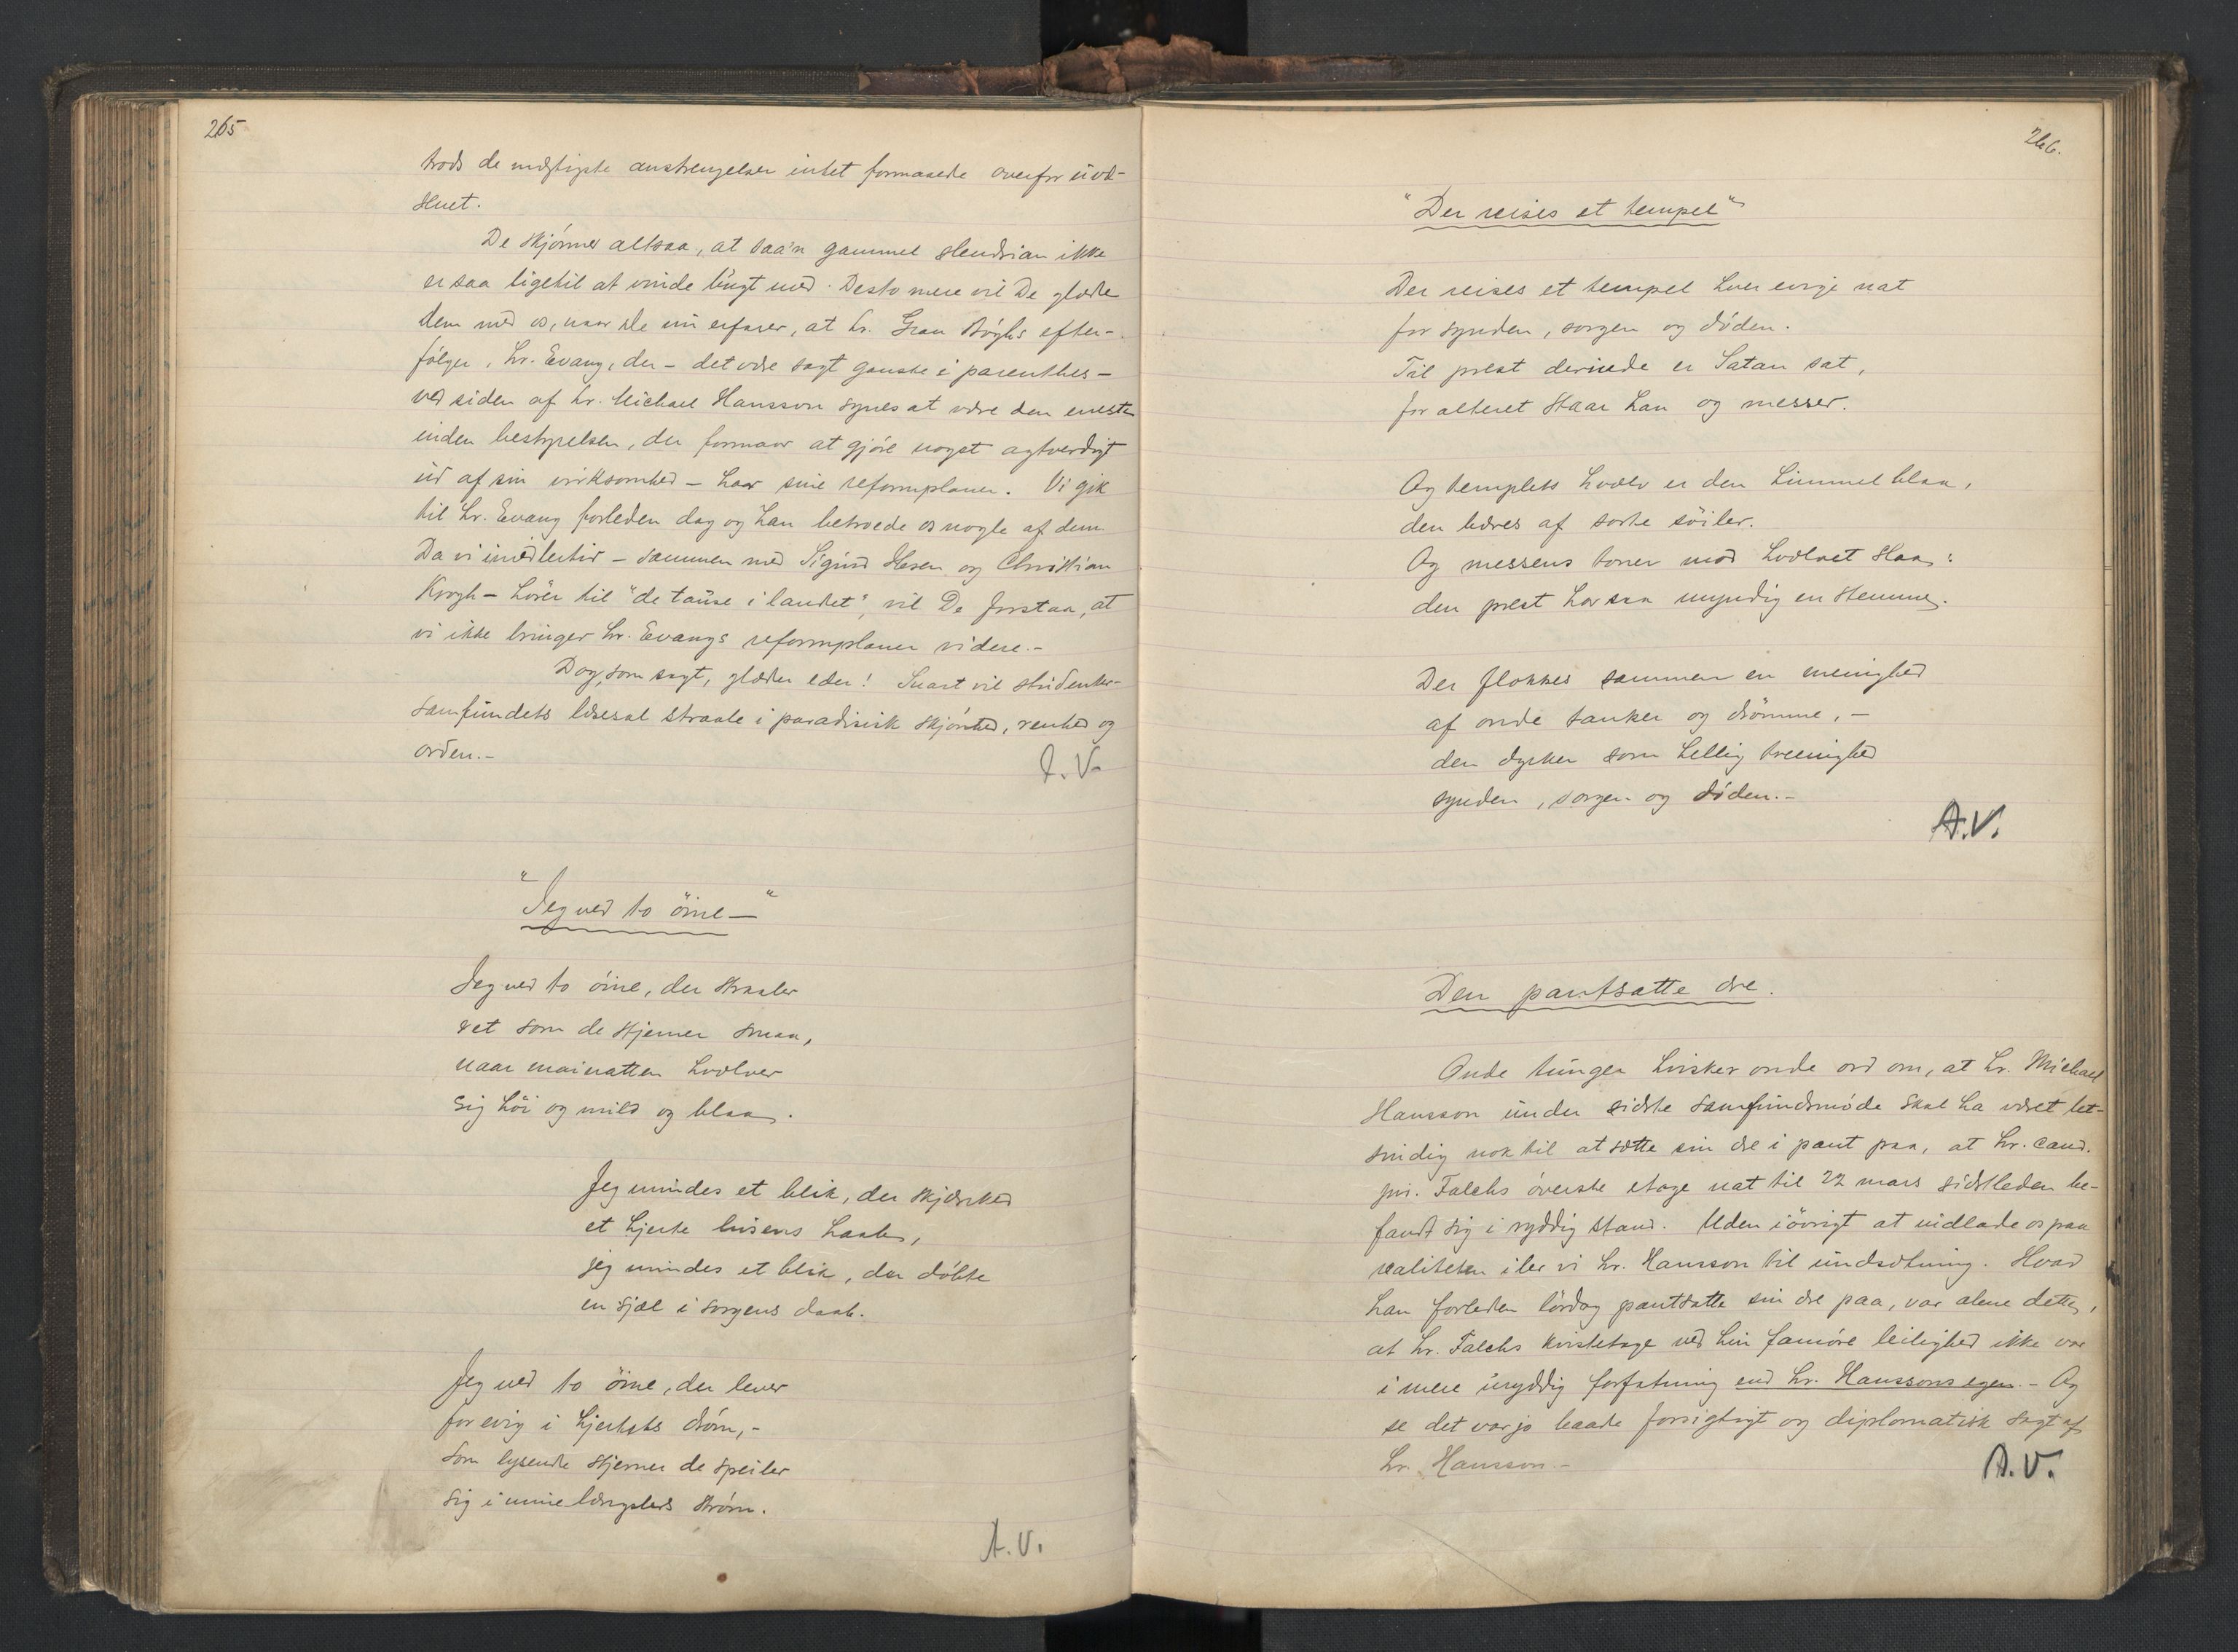 265
trods de mægtigste anstrengelser intet formaaede overfor uvæ-
snet.
De skjønner altsaa, at saa'n gammel slendrian ikke
er saa ligetil at vinde bugt med. Desto mere vil De glæde
dem med os, naar De nu erfarer, at hr. Gran Bøghs efter-
følger, hr. Evang, der – det være sagt ganske i parenthes –
ved siden af hr. Michael Hansson synes at være den eneste
inden bestyrelsen, der formaar at gjøre noget agtverdigt
ud af sin virksomhed – har sine reformplaner. Vi gik
til hr. Evang forleden dag og han betroede os nogle af dem.
Da vi imidlertid – sammen med Sigurd Ibsen og Christian
Krogh – hører til "de tause i landet", vil De forstaa, at
vi ikke bringer hr. Evangs reformplaner videre. –
Dog, som sagt, glæder eder! Snart vil studenter-
samfundets læsesal straale i paradisisk skjønhed, renhed og
orden. –
A.V.
"Jeg ved to øine –"
Jeg ved to øine, der straaler
ret som de stjerner smaa,
naar mainatten hvælver
sig høi og mild og blaa.
Jeg mindes et blik, der skjænked
et hjerte lysens haab,
jeg mindes et blik, der døbte
en sjæl i sorgens daab.
Jeg ved to øine, der lever
for evig i hjertets drøm, –
som lysende stjerner de speiler
sig i mine længslers strøm.
A.V.
266.
"Der reises et tempel"
Der reises et tempel hver evige nat
for synden, sorgen og døden.
Til prest derinde er Satan sat,
for alteret staar han og messer.
Og templets hvælv er den himmel blaa,
den bæres af sorte søiler.
Og messens toner mod hvælvet slaa:
den prest har saa myndig en stemme.
Der flokkes sammen en menighed
af onde tanker og drømme, –
den dyrker som hellig treenighed
synden, sorgen og døden. –
A.V.
Den pantsatte ære.
Onde tunger hvisker onde ord om, at hr. Michael
Hansson under sidste samfundsmøde skal ha været let-
sindig nok til at sætte sin ære i pant paa, at hr. cand.
jur. Falchs øverste etage nat til 22 mars sidstleden be-
fandt sig i ryddig stand. Uden iøvrigt at indlade os paa
realiteten iler vi hr. Hansson til undsætning. Hvad
han forleden lørdag pantsatte sin ære paa, var alene dette,
at hr. Falchs kvistetage ved hin famøse leilighed ikke var
i mere uryddig forfatning end hr. Hanssons egen. – Og
se det var jo baade forsigtigt og diplomatisk sagt af
hr. Hansson. –
A.V.